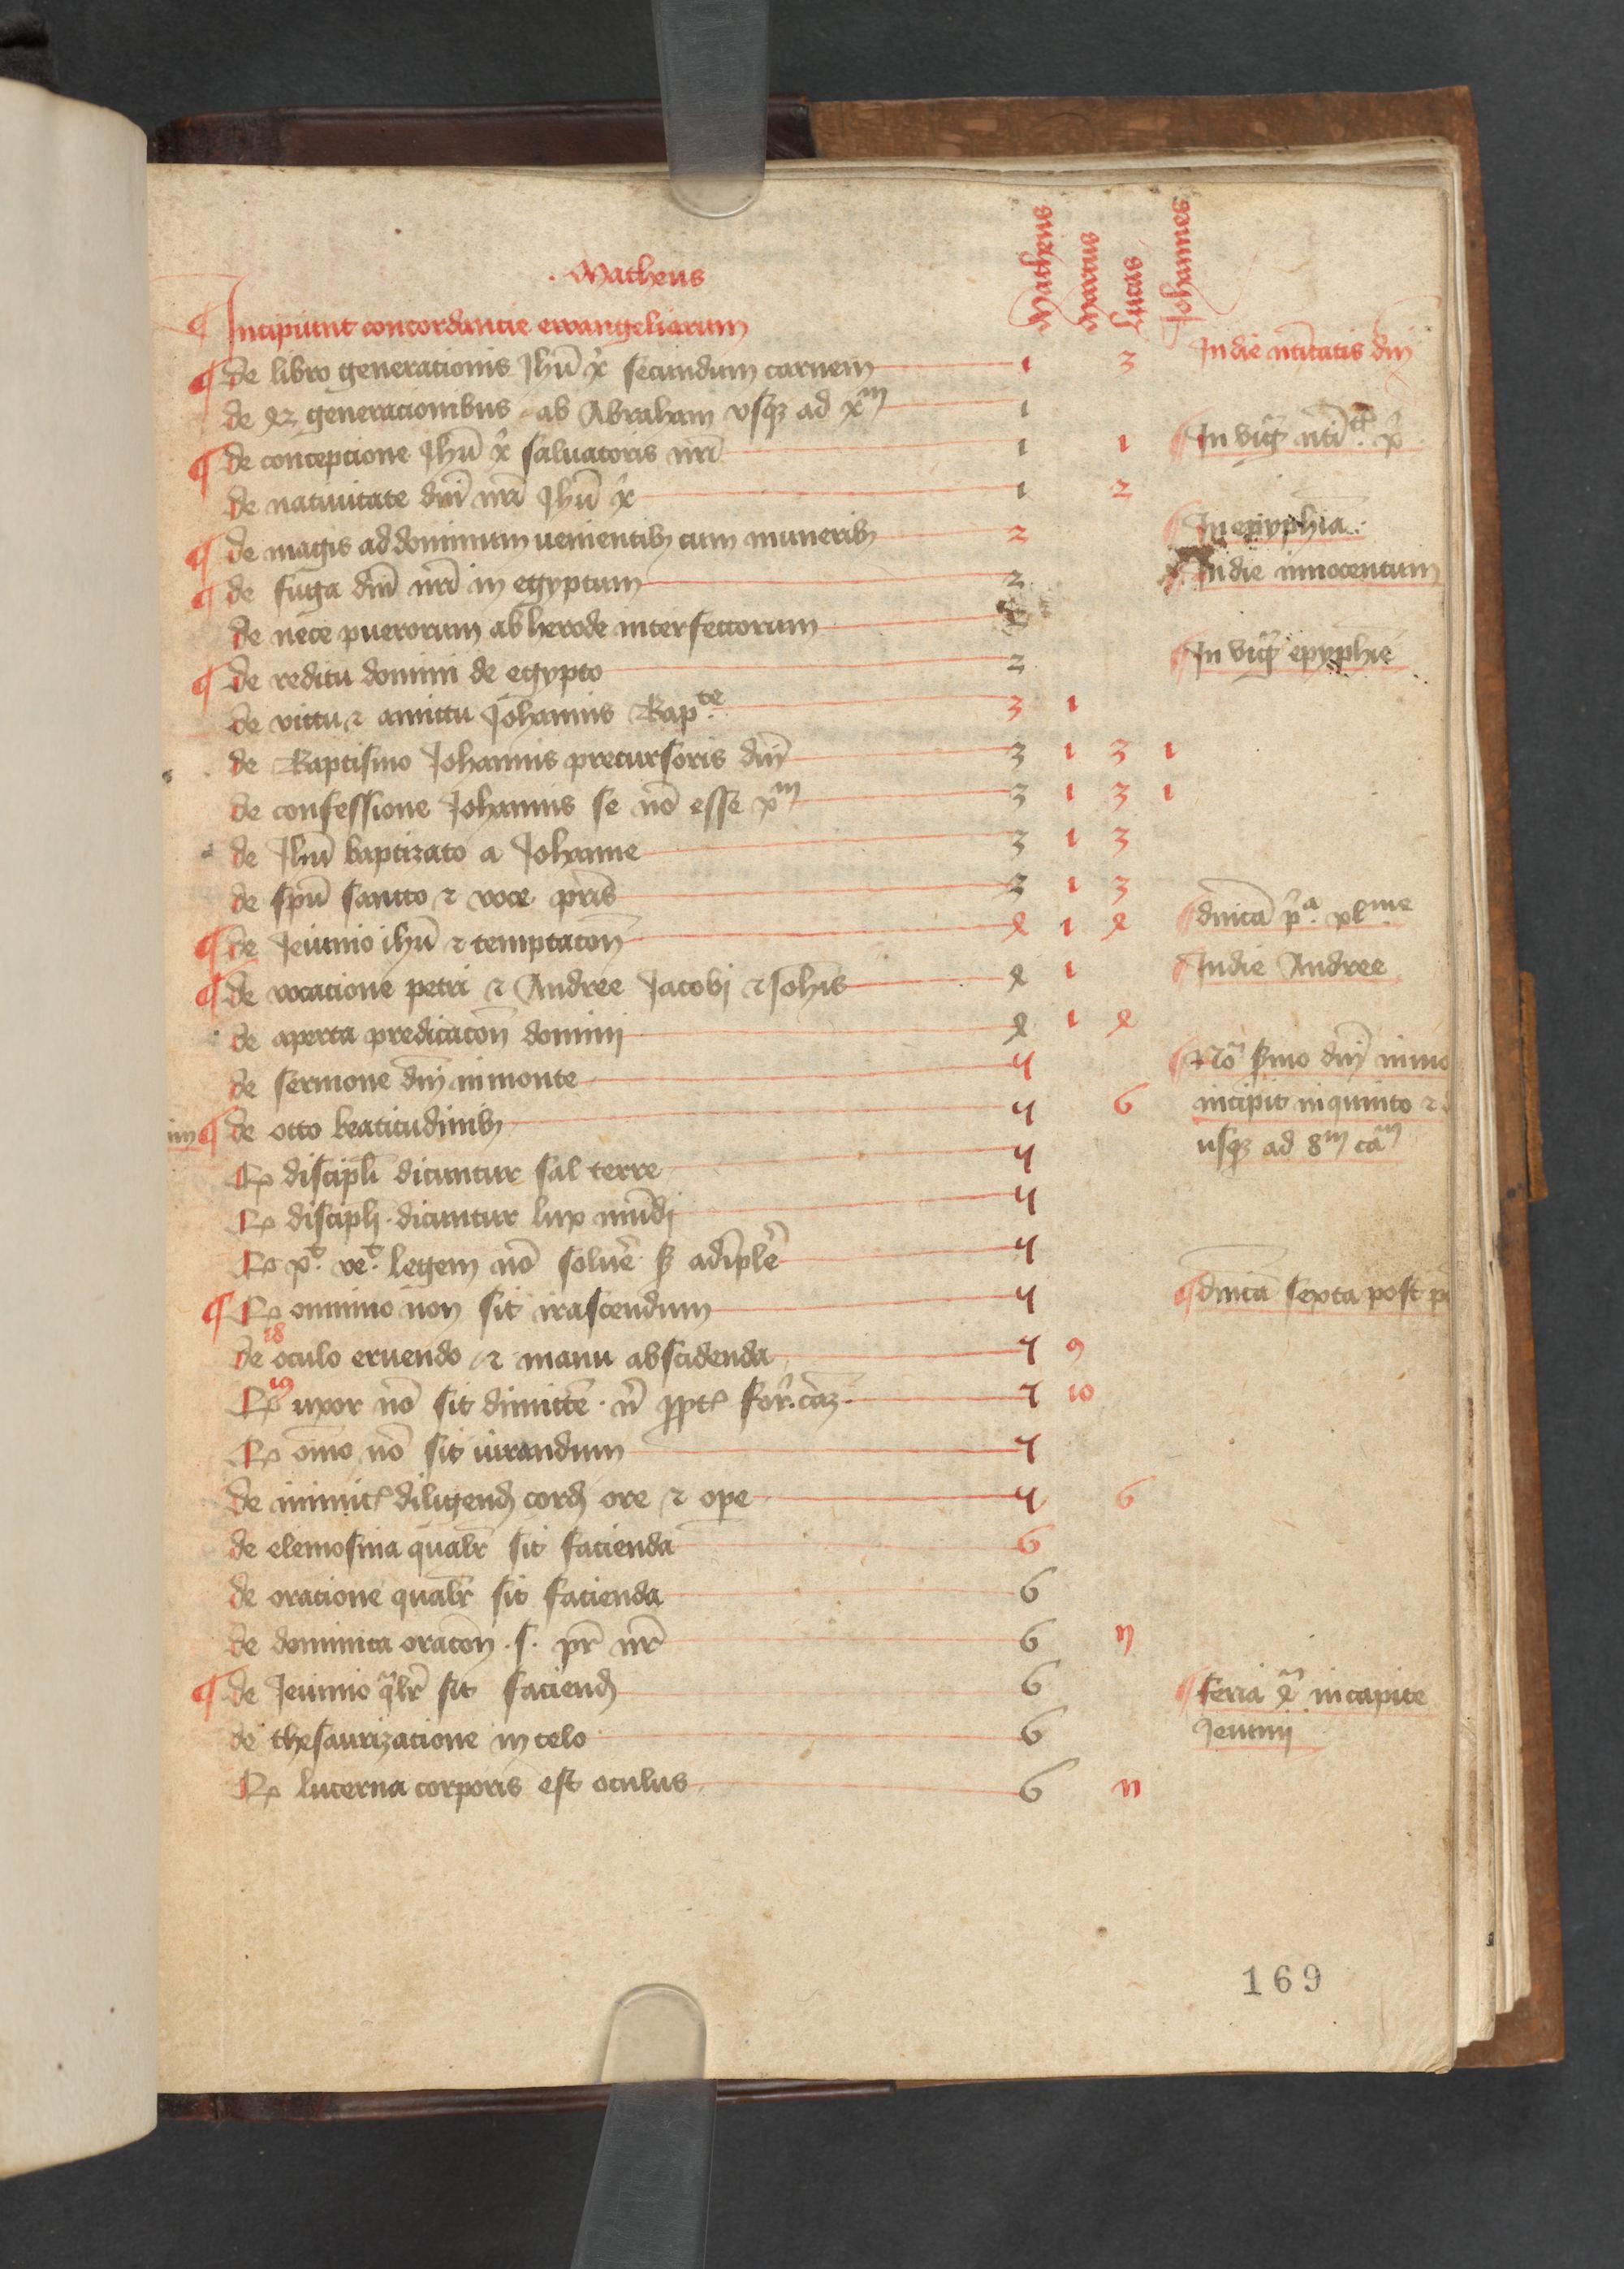 Matheus
Matheus Marcus Lucas Johannes
¶ Incipiunt concordancie ewangeliorum
¶ de libro generationis Jhū xp̄i secundum carnem 1 3 In die nt̄itatis dn̄j
de 42 generacionibus ab Abraham vsqꝫ ad xᵐ 1
¶ de concepcione Jhū xp̄i saluatoris nr̄i 1 1 ¶ In viḡ
de natiuitate dn̄i nr̄i Jhū xp̄i 1 2
¶ de magis ad dominum uenientibꝫ cum muneribꝫ 2 ¶ In epyphīa
¶ de fuga dn̄i nr̄i in egyptum 2 ¶ In die innocentum
de nece puerorum ab herode interfectorum 2
¶ de reditu domini de egypto 2 ¶ In viḡ epyphīe
de victu ⁊ amictu Johannis Bapᵗᵉ 3 1
de Baptismo Johannis precursoris dn̄j 3 1 3 1
de confessione Johannis se nō esse xᵐ 3 1 3 1
de Jhū baptizato a Johanne 3 1 3
de spū sancto ⁊ voce pr̄is 3 1 3
¶ de Jeiunio ihū ⁊ temptacōn 4 1 4 ¶ dn̄ica pᵃ xlᵐᵉ
¶ de vocacione petri ⁊ Andree Jacobj ⁊ Joh̄is 4 1 ¶ In die Andree
de aperta predicacōn dominj 4 1 4
de sermone dn̄j in monte 5 ¶ Nō s̄mo dn̄j in mo
¶ de octo beatitudinibꝫ 5 6 incipit in quinto ⁊
Qꝫ discipl̄i dicuntur sal terre 5 usqꝫ ad 8ᵐ cāᵐ
Qꝫ discipl̄j dicuntur lux mūdj 5
Qꝫ xᶜ veᶜ legem nō soluē sꝫ adīplē 5
¶ Qꝫ omnino non sit irascendum 5 ¶ dn̄ica sexta post
18
de oculo eruendo ⁊ manu abscidenda 5 9
19
Qꝫ uxor nō sit dimittē n̄ ꝓpt for̄ cāꝫ 5 10
Qꝫ oīno nō sit iurandum 5
de inimic̄ diligend̄ cord̄ ore ⁊ ope 5 6
de elemosina qual̄r sit facienda 6
de oracione qual̄r sit facienda 6
de dominica oracōn .s. pr̄ nr̄ 6 11
¶ de Jeiunio ql̄r sit faciend̄ 6 ¶ feria 4ᵃ in capite
de thesaurizacione in celo 6 Jeiunij
Qꝫ lucerna corporis est oculus 6 11
169